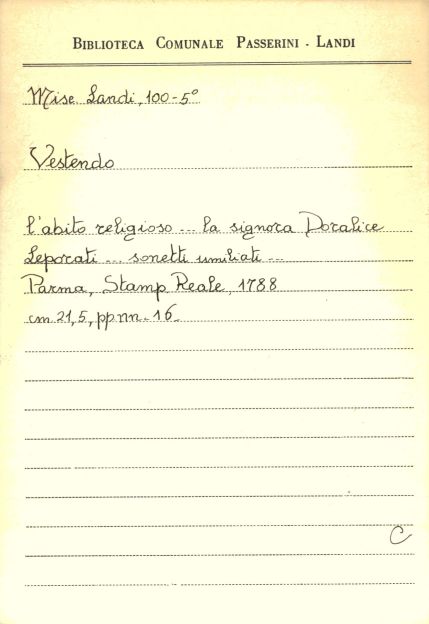 BIBLIOTECA COMUNALE PASSERINI - LANDI
Misc Landi, 100-5°
Vestendo
l'abito religioso ... la signora Doralice
Leporati ... sonetti umiliati ...
Parma, Stamp Reale, 1788
cm 21,5, pp nn. 16
C